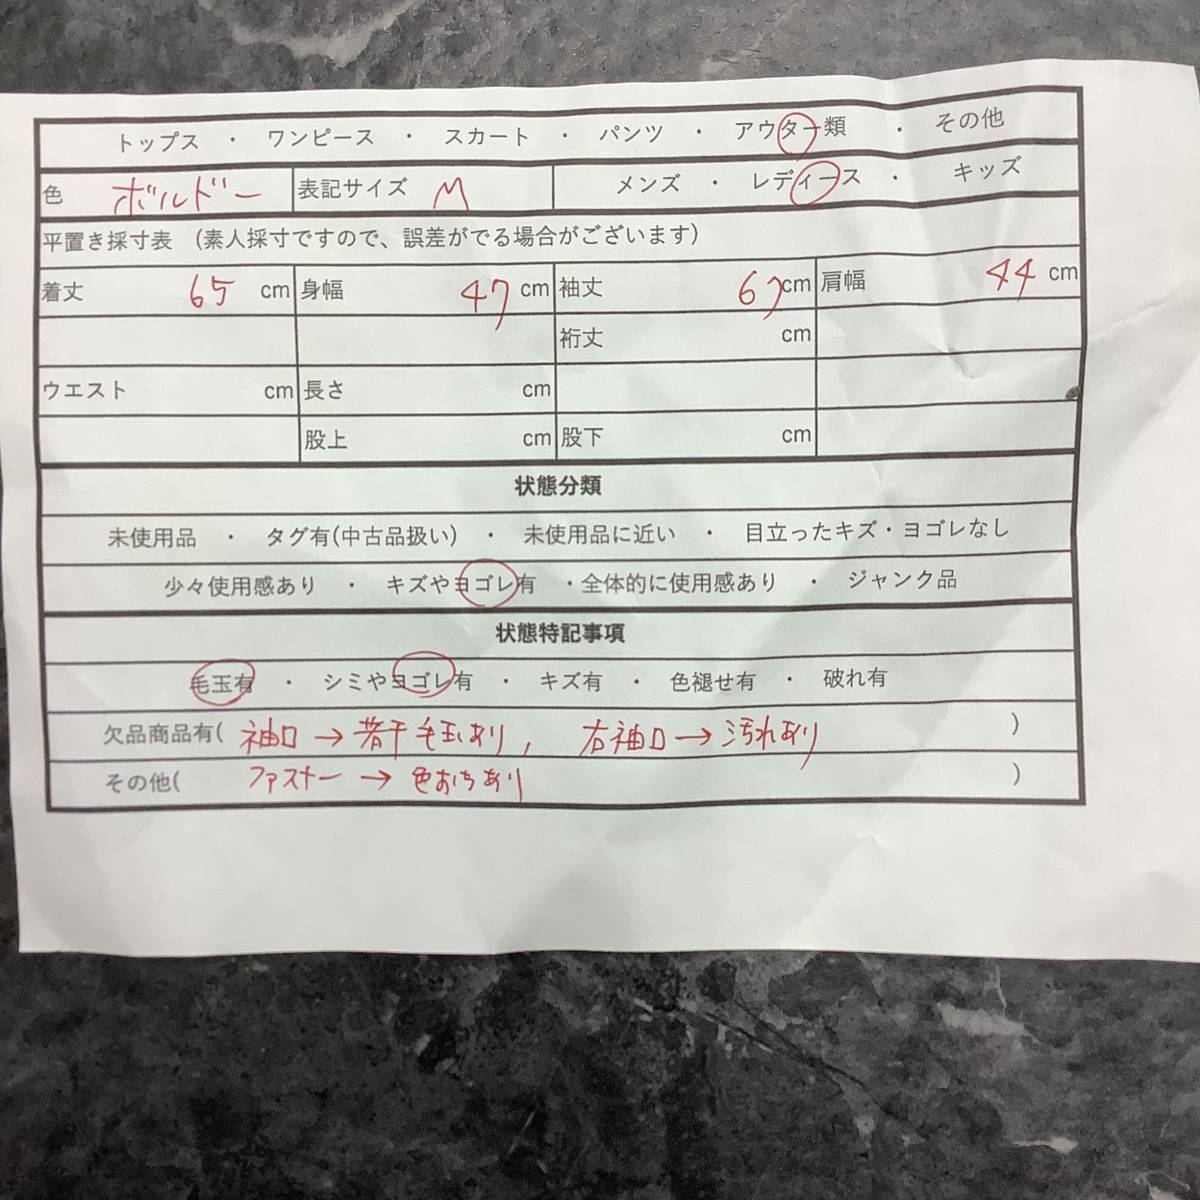 トップス ・ ワンピース ・ スカート ・ パンツ ・ アウター類 ・ その他
色 ボルドー 表記サイズ M メンズ ・ レディース ・ キッズ
平置き採寸表 (素人採寸ですので、誤差がでる場合がございます)
着丈 65 cm 身幅 47 cm 袖丈 67 cm 肩幅 44 cm
裄丈 cm
ウエスト cm 長さ cm
股上 cm 股下 cm
状態分類
未使用品 ・ タグ有(中古品扱い) ・ 未使用品に近い ・ 目立ったキズ・ヨゴレなし
少々使用感あり ・ キズやヨゴレ有 ・全体的に使用感あり ・ ジャンク品
状態特記事項
毛玉有 ・ シミやヨゴレ有 ・ キズ有 ・ 色褪せ有 ・ 破れ有
欠品商品有( 袖口 → 若干毛玉あり, 右袖口 → 汚れあり )
その他( ファスナー → 色おちあり )